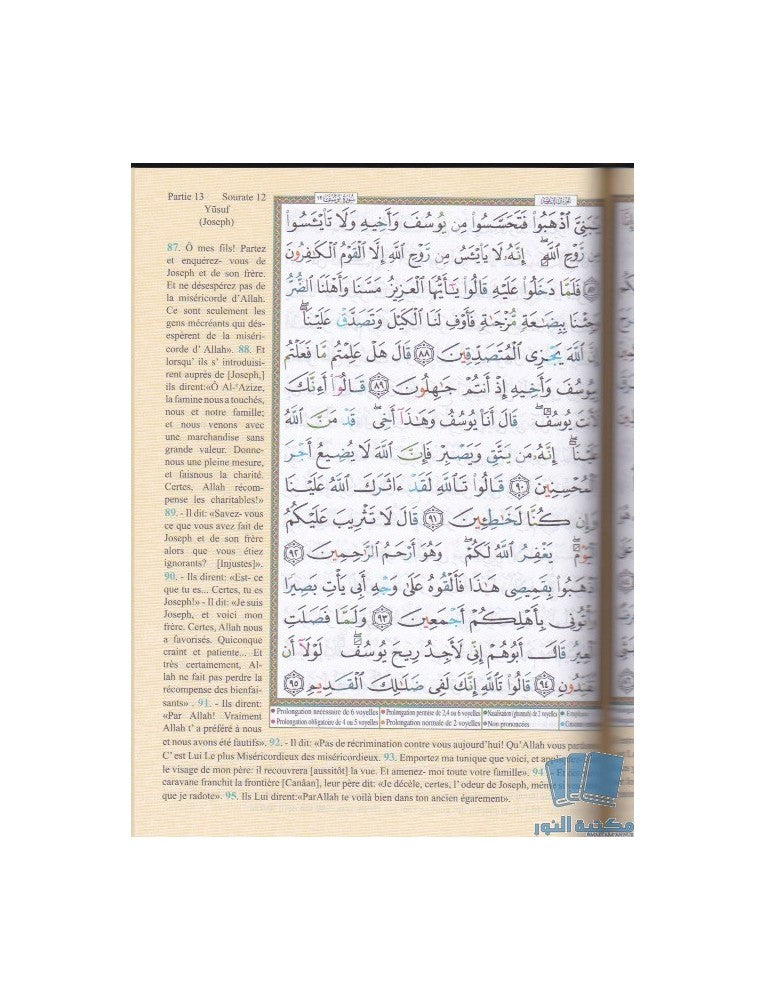 Partie 13 Sourate 12
Yūsuf
(Joseph)
87. Ô mes fils! Partez
et enquérez- vous de
Joseph et de son frère.
Et ne désespérez pas de
la miséricorde d'Allah.
Ce sont seulement les
gens mécréants qui dés-
espèrent de la miséri-
corde d' Allah». 88. Et
lorsqu' ils s' introduisi-
rent auprès de [Joseph,]
ils dirent:«Ô Al-'Azize,
la famine nous a touchés,
nous et notre famille;
et nous venons avec
une marchandise sans
grande valeur. Donne-
nous une pleine mesure,
et faisnous la charité.
Certes, Allah récom-
pense les charitables!»
89. - Il dit: «Savez- vous
ce que vous avez fait de
Joseph et de son frère
alors que vous étiez
ignorants? [Injustes]».
90. - Ils dirent: «Est- ce
que tu es... Certes, tu es
Joseph!» - Il dit: «Je suis
Joseph, et voici mon
frère. Certes, Allah nous
a favorisés. Quiconque
craint et patiente... Et
très certainement, Al-
lah ne fait pas perdre la
récompense des bienfai-
sants» . 91. - Ils dirent:
«Par Allah! Vraiment
Allah t' a préféré à nous
et nous avons été fautifs». 92. - Il dit: «Pas de récrimination contre vous aujourd'hui! Qu'Allah vous
C' est Lui Le plus Miséricordieux des miséricordieux. 93. Emportez ma tunique que voici, et
le visage de mon père: il recouvrera [aussitôt] la vue. Et amenez- moi toute votre famille». 94 - Et
caravane franchit la frontière [Canâan], leur père dit: «Je décèle, certes, l' odeur de Joseph, même si
que je radote». 95. Ils Lui dirent:«ParAllah te voilà bien dans ton ancien égarement».
سُورَةُ يُوسُفَ ١٢
يَٰبَنِىَّ ٱذْهَبُوا۟ فَتَحَسَّسُوا۟ مِن يُوسُفَ وَأَخِيهِ وَلَا تَا۟يْـَٔسُوا۟
مِن رَّوْحِ ٱللَّهِ ۖ إِنَّهُۥ لَا يَا۟يْـَٔسُ مِن رَّوْحِ ٱللَّهِ إِلَّا ٱلْقَوْمُ ٱلْكَٰفِرُونَ
٨٧ فَلَمَّا دَخَلُوا۟ عَلَيْهِ قَالُوا۟ يَٰٓأَيُّهَا ٱلْعَزِيزُ مَسَّنَا وَأَهْلَنَا ٱلضُّرُّ
وَجِئْنَا بِبِضَٰعَةٍ مُّزْجَىٰةٍ فَأَوْفِ لَنَا ٱلْكَيْلَ وَتَصَدَّقْ عَلَيْنَآ ۖ
إِنَّ ٱللَّهَ يَجْزِى ٱلْمُتَصَدِّقِينَ ٨٨ قَالَ هَلْ عَلِمْتُم مَّا فَعَلْتُم
بِيُوسُفَ وَأَخِيهِ إِذْ أَنتُمْ جَٰهِلُونَ ٨٩ قَالُوٓا۟ أَءِنَّكَ
لَأَنتَ يُوسُفُ ۖ قَالَ أَنَا۠ يُوسُفُ وَهَٰذَآ أَخِى ۖ قَدْ مَنَّ ٱللَّهُ
عَلَيْنَآ ۖ إِنَّهُۥ مَن يَتَّقِ وَيَصْبِرْ فَإِنَّ ٱللَّهَ لَا يُضِيعُ أَجْرَ
ٱلْمُحْسِنِينَ ٩٠ قَالُوا۟ تَٱللَّهِ لَقَدْ ءَاثَرَكَ ٱللَّهُ عَلَيْنَا
وَإِن كُنَّا لَخَٰطِـِٔينَ ٩١ قَالَ لَا تَثْرِيبَ عَلَيْكُمُ
ٱلْيَوْمَ ۖ يَغْفِرُ ٱللَّهُ لَكُمْ ۖ وَهُوَ أَرْحَمُ ٱلرَّٰحِمِينَ ٩٢
ٱذْهَبُوا۟ بِقَمِيصِى هَٰذَا فَأَلْقُوهُ عَلَىٰ وَجْهِ أَبِى يَأْتِ بَصِيرًا
وَأْتُونِى بِأَهْلِكُمْ أَجْمَعِينَ ٩٣ وَلَمَّا فَصَلَتِ
ٱلْعِيرُ قَالَ أَبُوهُمْ إِنِّى لَأَجِدُ رِيحَ يُوسُفَ ۖ لَوْلَآ أَن
تُفَنِّدُونِ ٩٤ قَالُوا۟ تَٱللَّهِ إِنَّكَ لَفِى ضَلَٰلِكَ ٱلْقَدِيمِ ٩٥
Prolongation nécessaire de 6 voyelles Prolongation permise de 2,4 ou 6 voyelles Nasalisation (ghunnah) de 2 voyelles Emphase
Prolongation obligatoire de 4 ou 5 voyelles Prolongation normale de 2 voyelles Non prononcées
مكتبة النور